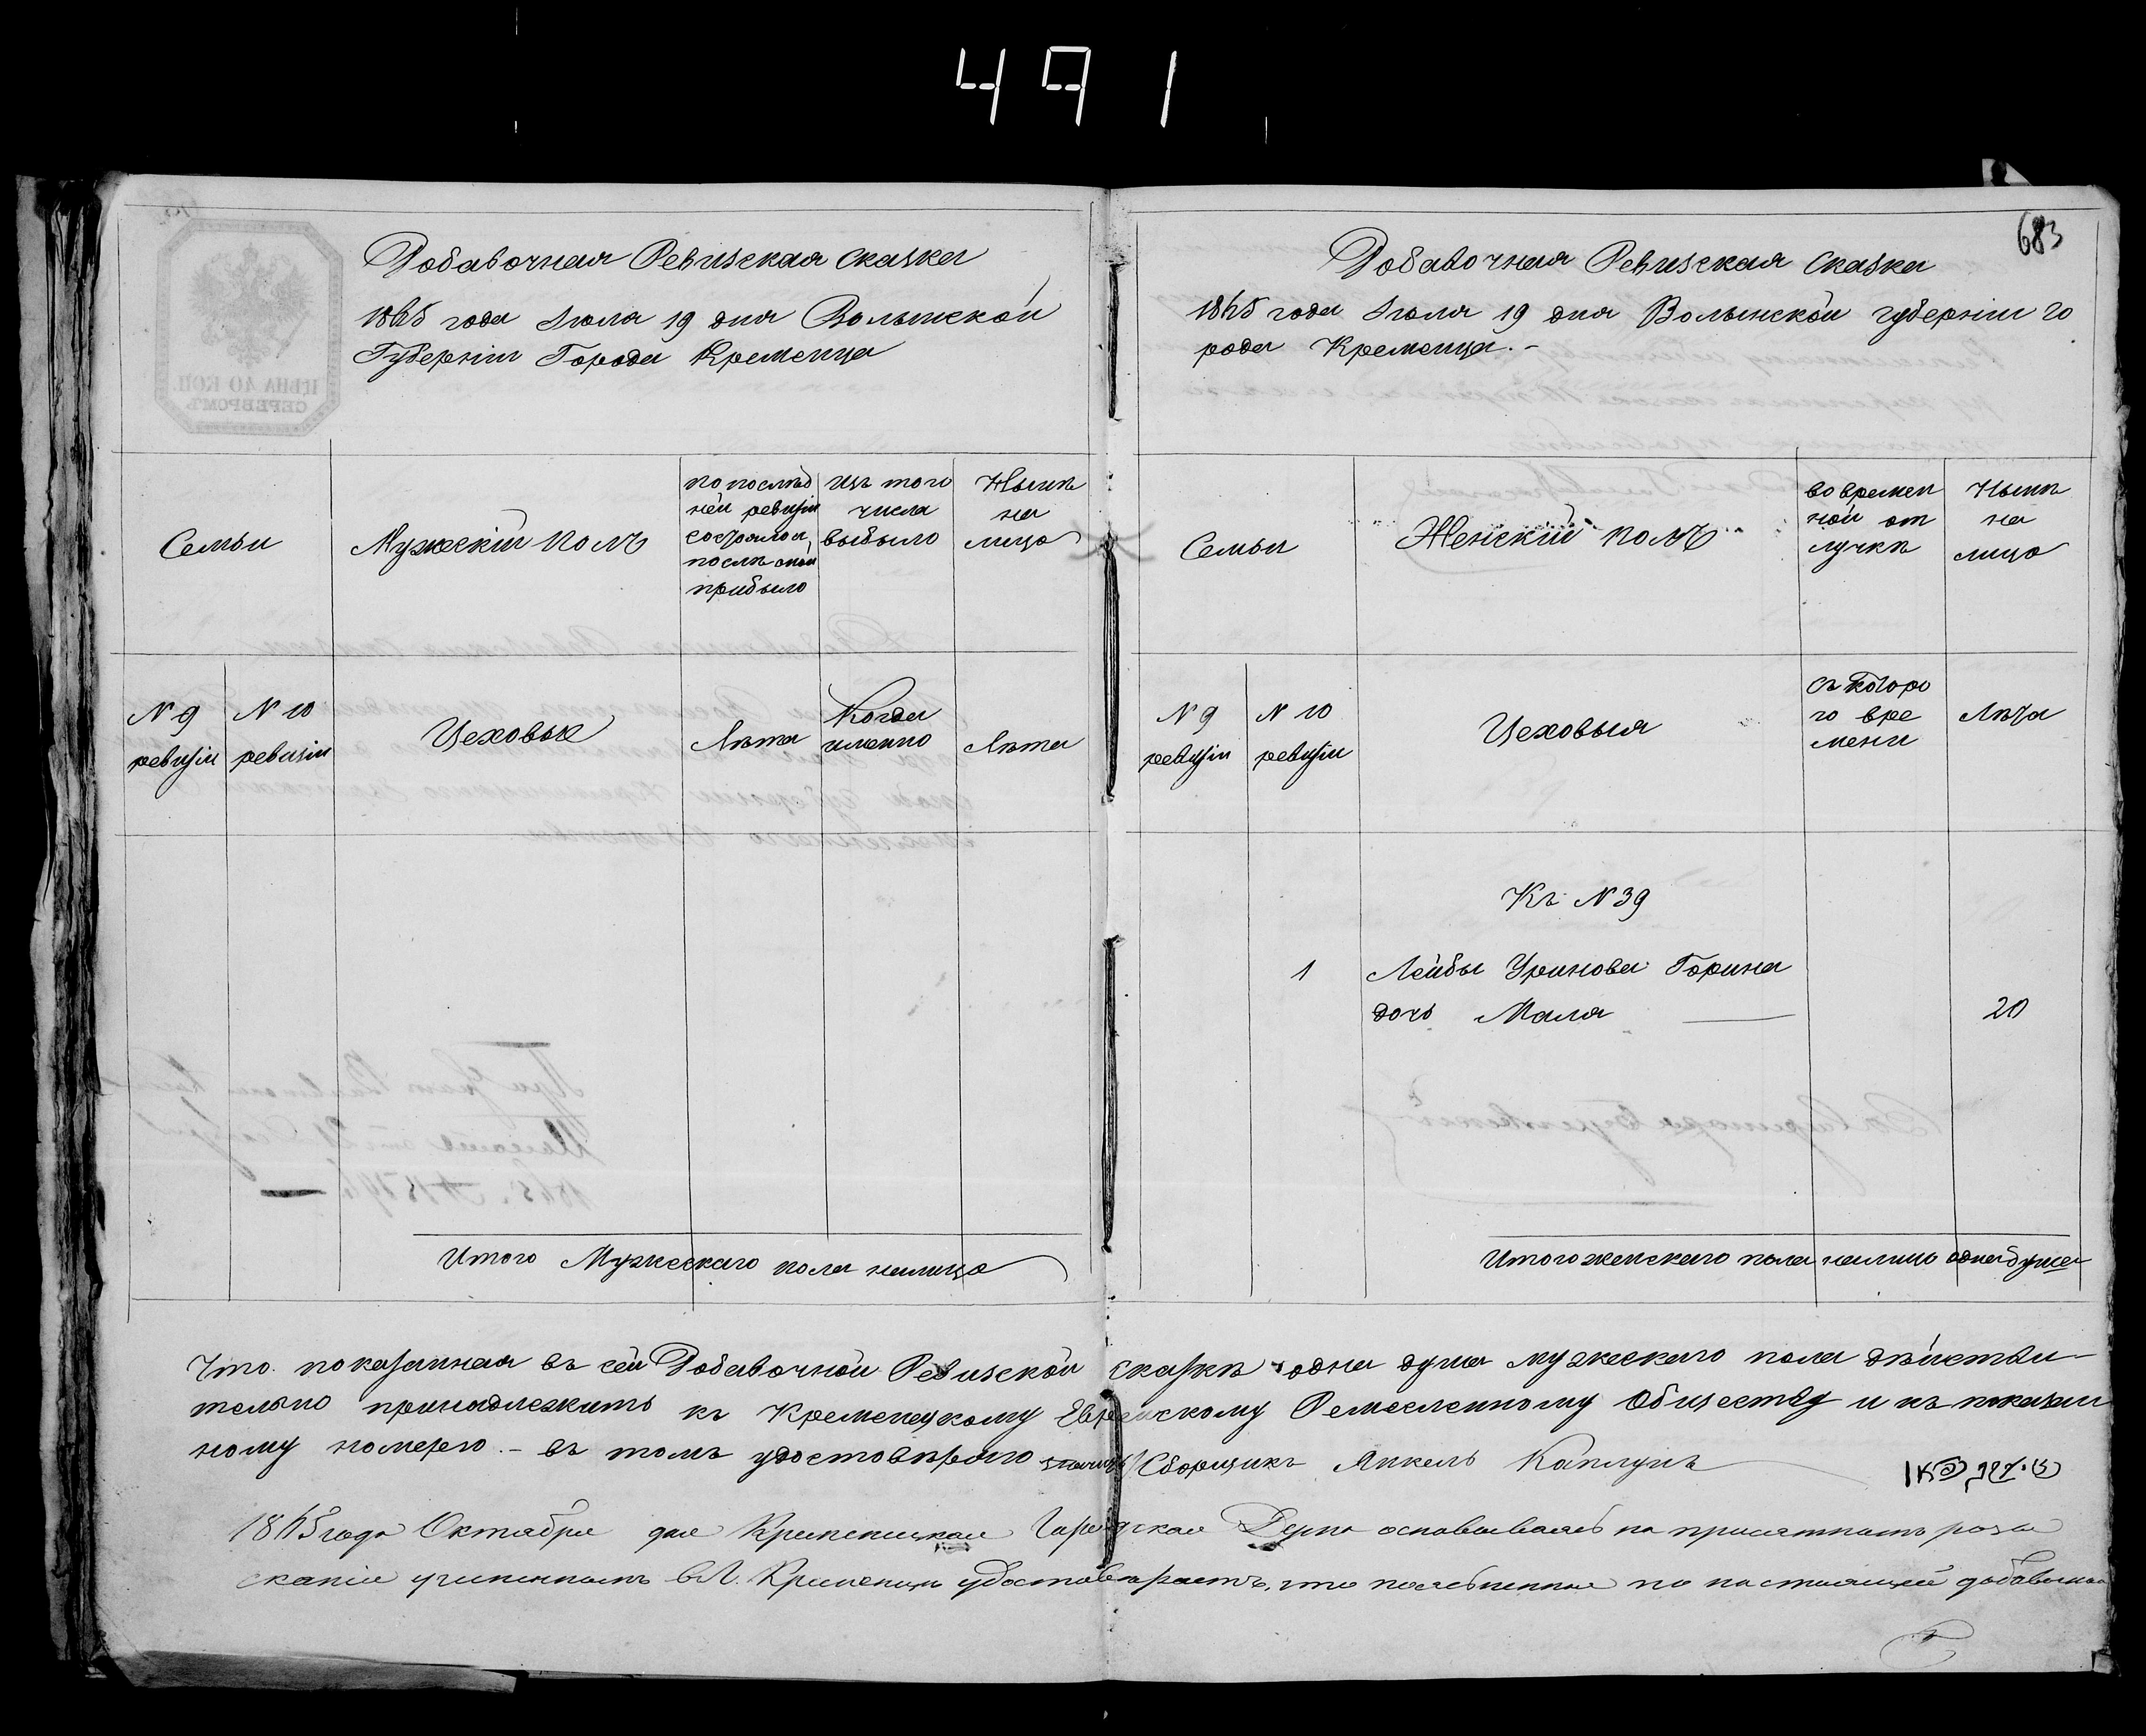 491
683
Добавочная Ревизская сказка
1865 года Іюля 19 дня Волынской
Губерніи Города Кременца
Семьи
Мужескій полъ
по послѣд
ней ревизіи
состояло и
послѣ оной
прибыло
изъ того
числа
выбыло
Нынѣ
на
лицо
N 9
ревизіи
N 10
ревизіи
Цеховые
Лѣта
Когда
именно
Лѣта
Итого Мужескаго пола налицо
Добавочная Ревизская сказка
1865 года Іюля 19 дня Волынской губерніи го
рода Кременца.-
Семьи
Женскій полъ
во времен
ной от
лучкѣ
Нынѣ
на
лицо
N 9
ревизіи
N 10
ревизіи
Цеховыя
съ которо
го вре
мени
Лѣта
Къ N 39
1 Лейбы Уринова Горина
дочь Маля 20
Итого женскаго пола налицо одна душа
Что показанная въ сей Добавочной Ревизской сказкѣ одна душа мужескаго пола дѣйстви-
тельно принадлежитъ къ Кременецкому Еврейскому Ремесленному Обществу и къ показан
ному номерю.- въ томъ удостовѣряю Сборщикъ Янкель Каплунъ
1865 года Октября дня Кременецкая Городская Дума основываясь на присяжномъ розы
сканіи учиненномъ въ г. Кременцѣ удостовѣряетъ, что по настоящей добавочной
ЦѢНА 40 КОП.
СЕРЕБРОМЪ